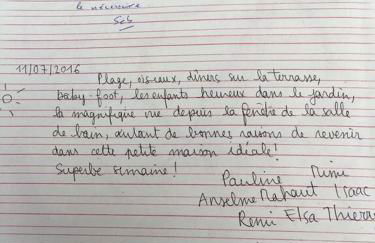 le nécessaire
Seb
11/07/2016
Plage, oiseaux, dîners sur la terrasse,
baby-foot, les enfants heureux dans le jardin,
la magnifique vue depuis la fenêtre de la salle
de bain, autant de bonnes raisons de revenir
dans cette petite maison idéale!
Superbe semaine!
Pauline Mimi
Anselme Mahaut Isaac
Rémi Elsa Thierry